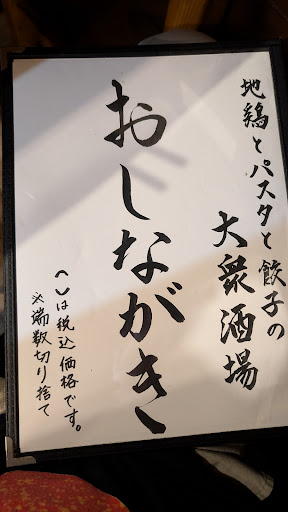 地鶏とパスタと餃子の
大衆酒場
おしながき
( )は税込価格です。
※端数切り捨て